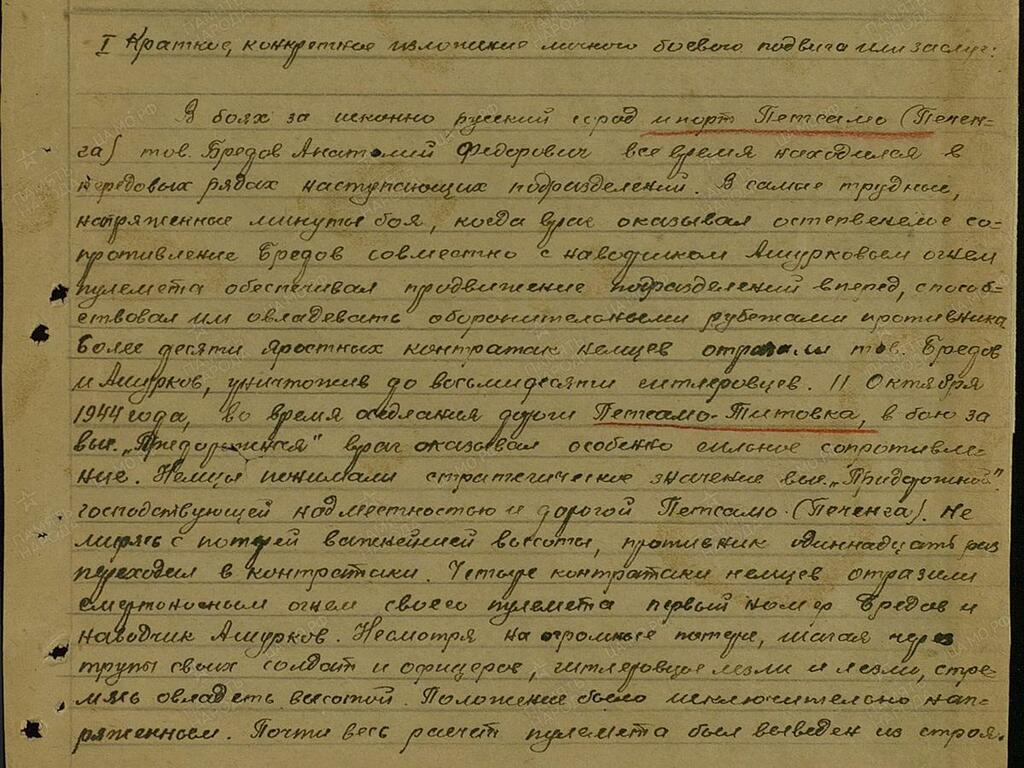 I Краткое, конкретное изложение личного боевого подвига или заслуг.
В боях за исконно русский город и порт Петсамо (Печен=
га) тов. Бредов Анатолий Федорович все время находился в
передовых рядах наступающих подразделений. В самые трудные,
напряженные минуты боя, когда враг оказывал остервенелое со-
противление Бредов совместно с наводчиком Ашурковым огнем
пулемета обеспечивал продвижение подразделений вперед, способ=
ствовал им овладевать оборонительными рубежами противника
Более десяти яростных контратак немцев отразили тов. Бредов
и Ашурков, уничтожив до восьмидесяти гитлеровцев. 11 Октября
1944 года, во время оседлания дороги Петсамо-Титовка, в бою за
выс. „Придорожная" враг оказывал особенно сильное сопротивле-
ние. Немцы понимали стратегическое значение выс. „Придорожной"
господствующей над местностью и дорогой Петсамо (Печенга). Не
мирясь с потерей важнейшей высоты, противник одиннадцать раз
переходил в контратаки. Четыре контратаки немцев отразили
смертоносным огнем своего пулемета первый номер Бредов и
наводчик Ашурков. Несмотря на огромные потери, шагая через
трупы своих солдат и офицеров, гитлеровцы лезли и лезли, стре-
мясь овладеть высотой. Положение было исключительно нап-
ряженным. Почти весь расчет пулемета был выведен из строя.